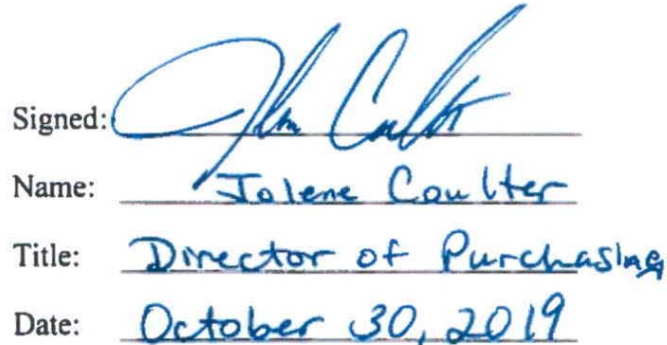 Signed:
Name: Jolene Coulter
Title: Director of Purchasing
Date: October 30, 2019